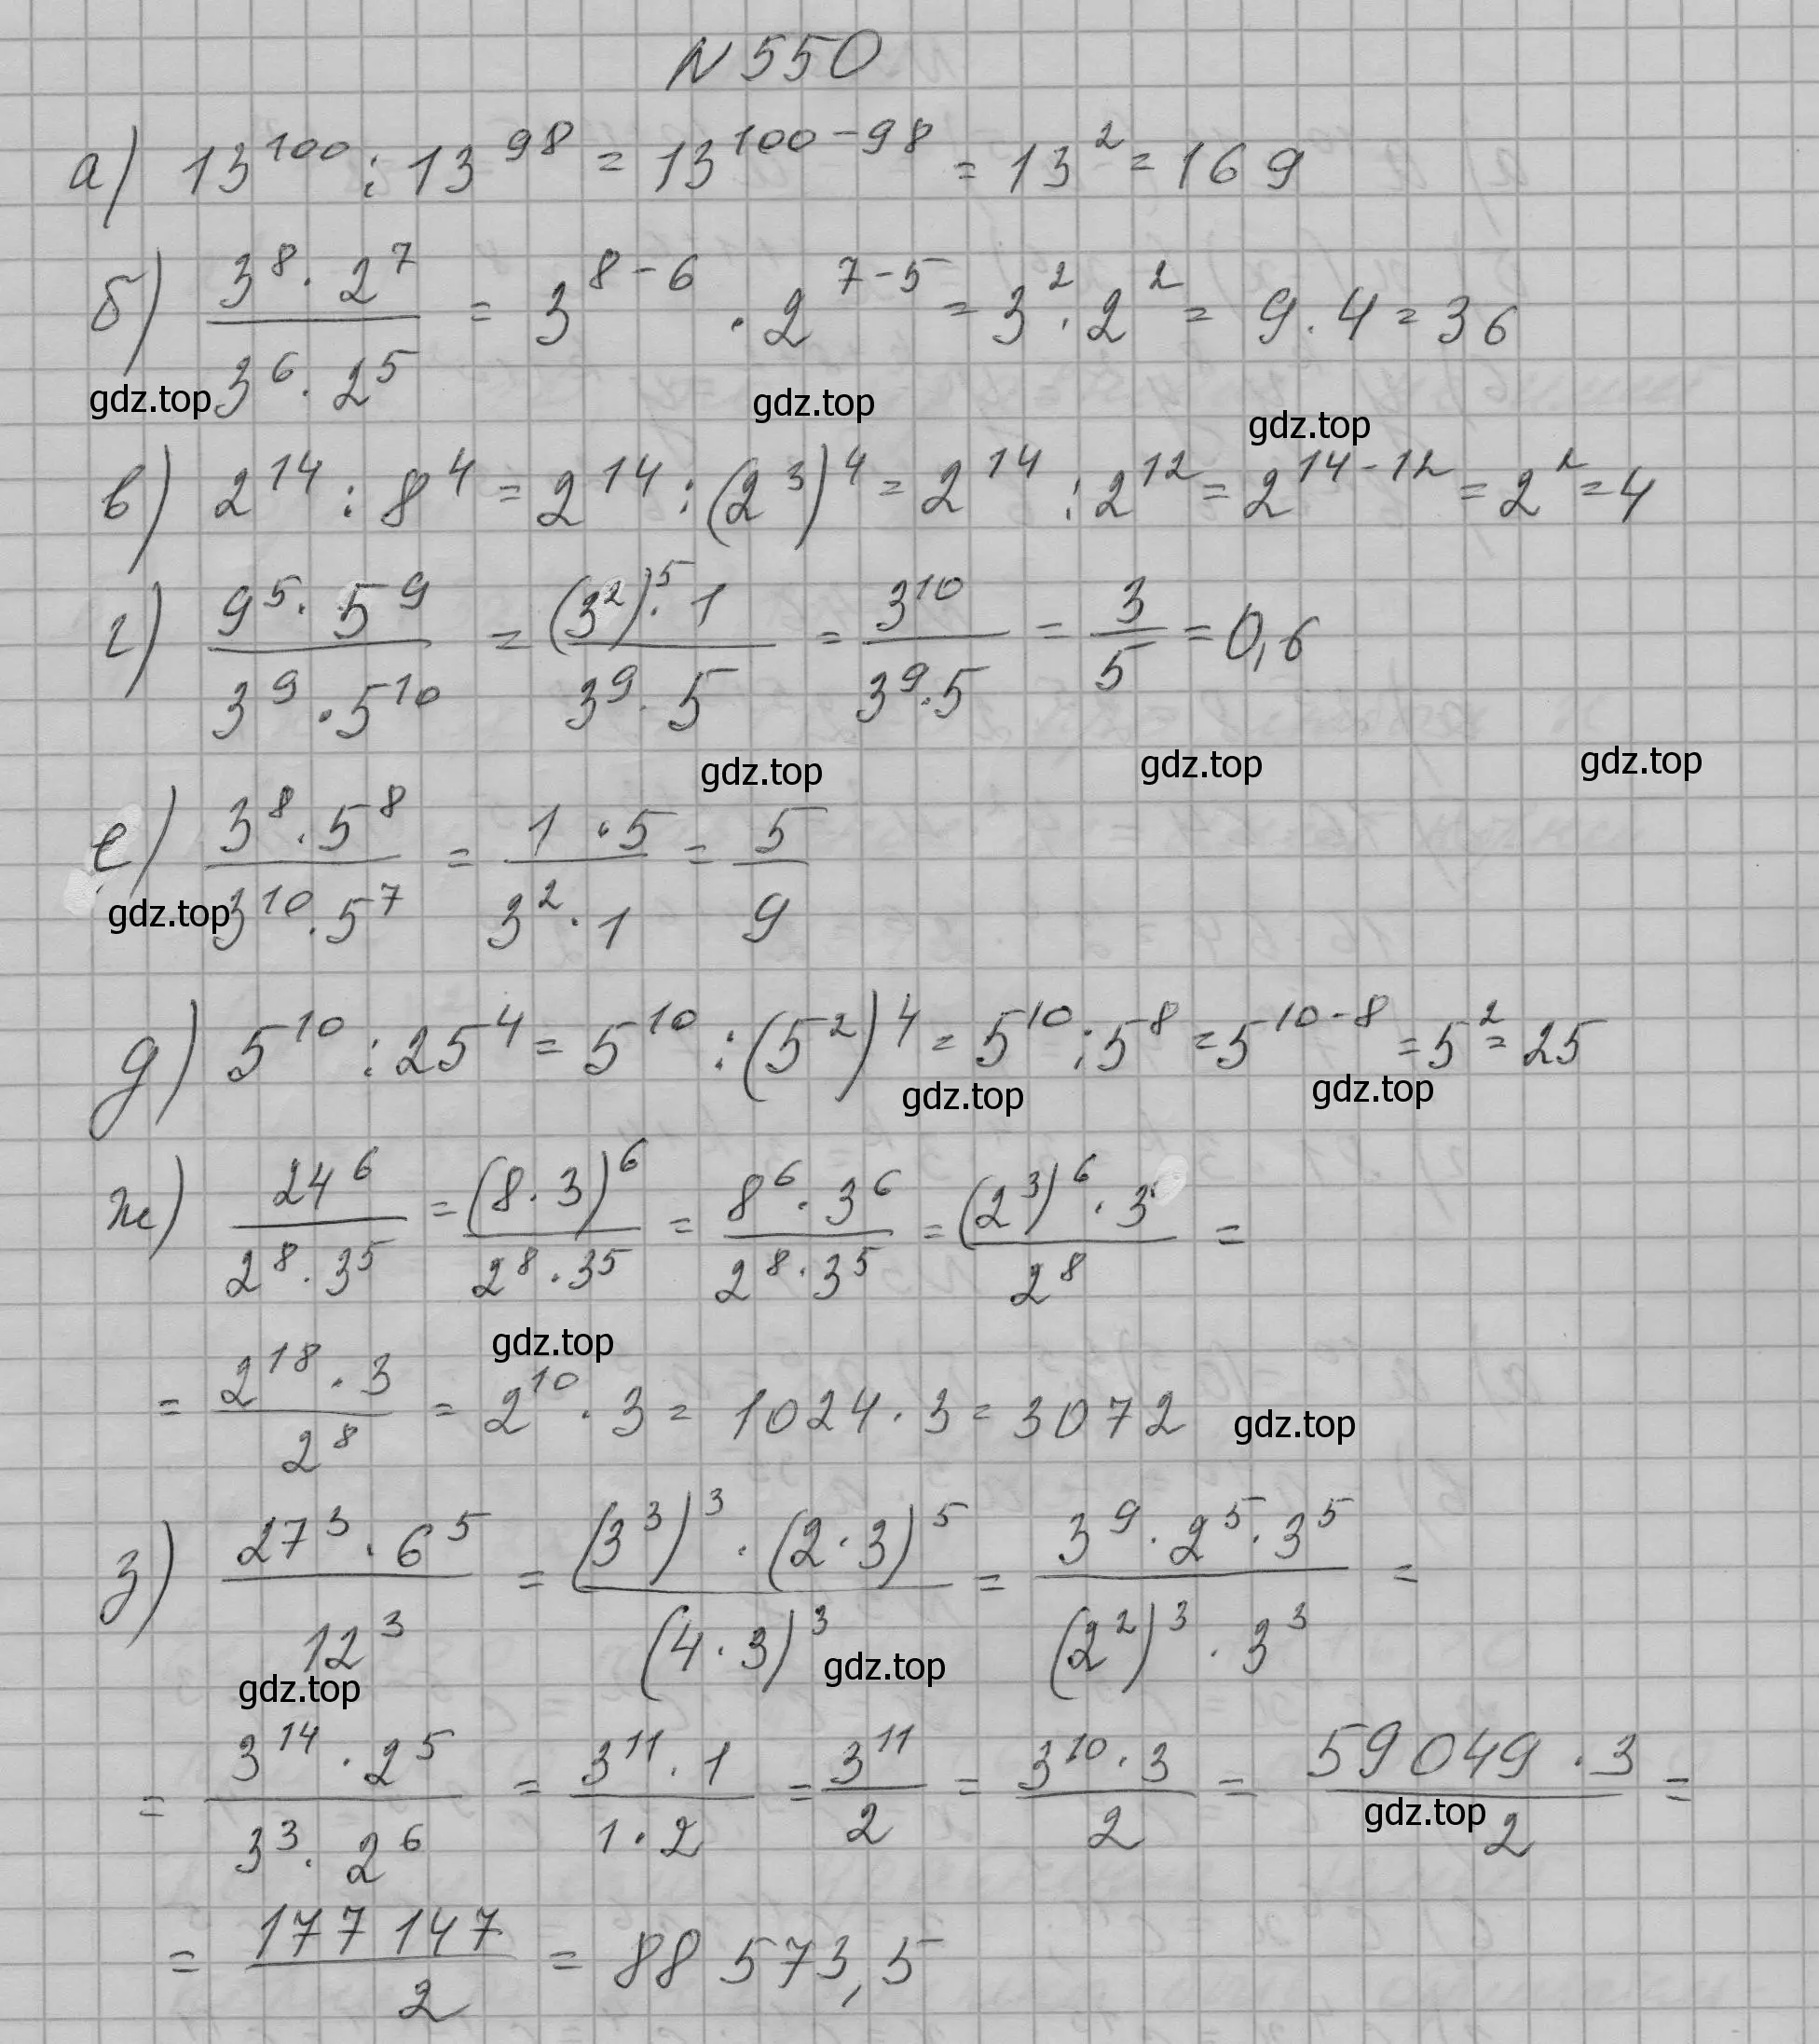 N 550
а) 13^100 : 13^98 = 13^(100-98) = 13^2 = 169
б) (3^8 · 2^7)/(3^6 · 2^5) = 3^(8-6) · 2^(7-5) = 3^2 · 2^2 = 9 · 4 = 36
gdz.top gdz.top gdz.top
в) 2^14 : 8^4 = 2^14 : (2^3)^4 = 2^14 : 2^12 = 2^(14-12) = 2^2 = 4
г) (9^5 · 5^9)/(3^9 · 5^10) = ((3^2)^5 · 1)/(3^9 · 5) = 3^10/(3^9 · 5) = 3/5 = 0,6
gdz.top gdz.top gdz.top
е) (3^8 · 5^8)/(3^10 · 5^7) = (1 · 5)/(3^2 · 1) = 5/9
gdz.top
д) 5^10 : 25^4 = 5^10 : (5^2)^4 = 5^10 : 5^8 = 5^(10-8) = 5^2 = 25
gdz.top gdz.top
ж) 24^6/(2^8 · 3^5) = (8 · 3)^6/(2^8 · 3^5) = (8^6 · 3^6)/(2^8 · 3^5) = ((2^3)^6 · 3)/2^8 =
gdz.top
= (2^18 · 3)/2^8 = 2^10 · 3 = 1024 · 3 = 3072 gdz.top
з) (27^3 · 6^5)/12^3 = ((3^3)^3 · (2 · 3)^5)/(4 · 3)^3 = (3^9 · 2^5 · 3^5)/((2^2)^3 · 3^3) =
gdz.top gdz.top
= (3^14 · 2^5)/(3^3 · 2^6) = (3^11 · 1)/(1 · 2) = 3^11/2 = (3^10 · 3)/2 = (59049 · 3)/2 =
gdz.top
= 177 147/2 = 88 573,5